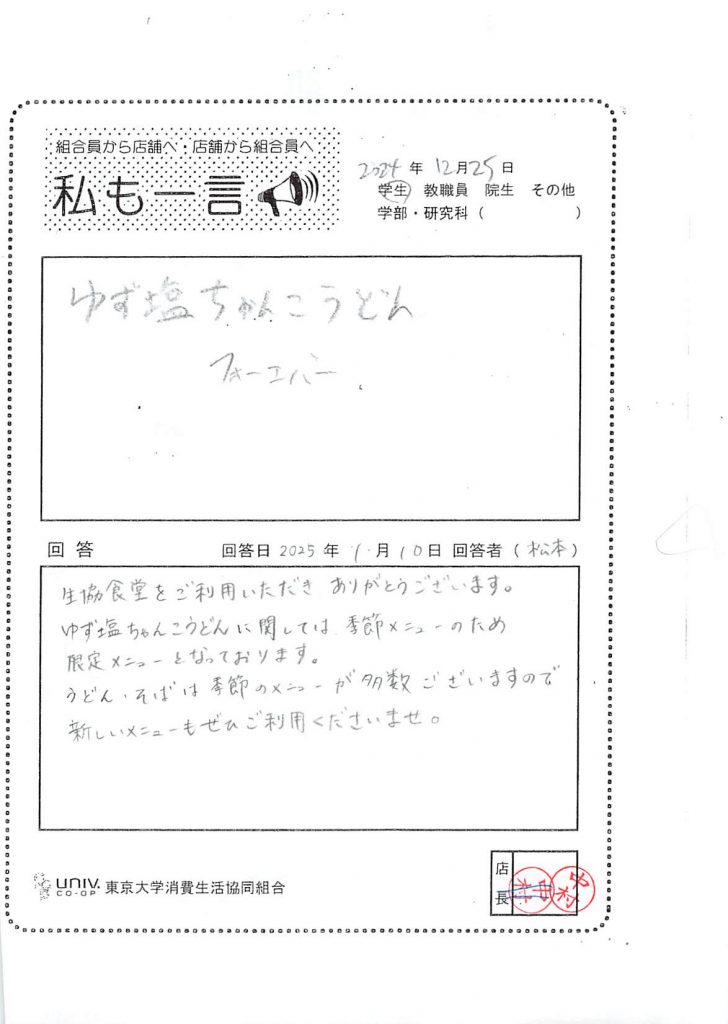 組合員から店舗へ・店舗から組合員へ
私も一言
2024年12月25日
学生 教職員 院生 その他
学部・研究科（ ）
ゆず塩ちゃんこうどん
フォーエバー
回答 回答日2025年1月10日 回答者（松本）
生協食堂をご利用いただきありがとうございます。
ゆず塩ちゃんこうどんに関しては、季節メニューのため
限定メニューとなっております。
うどん・そばは季節のメニューが多数ございますので
新しいメニューもぜひご利用くださいませ。
UNIV.
CO-OP
東京大学消費生活協同組合
店長
中村
中村